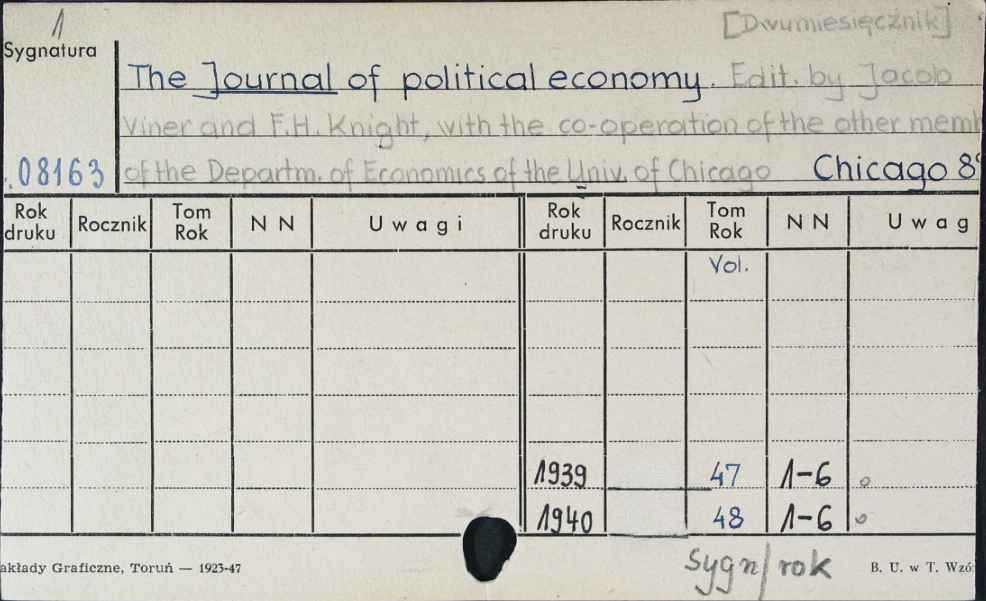 1 [Dwumiesięcznik]
Sygnatura
The Journal of political economy. Edit. by Jacob
Viner and F.H. Knight, with the co-operation of the other memb
.08163 of the Departm. of Economics of the Univ. of Chicago Chicago 8°
Rok druku Rocznik Tom Rok NN Uwagi Rok druku Rocznik Tom Rok NN Uwag
Vol.
1939 47 1-6 o
1940 48 1-6 o
sygn/rok
akłady Graficzne, Toruń — 1923-47 B. U. w T. Wzó